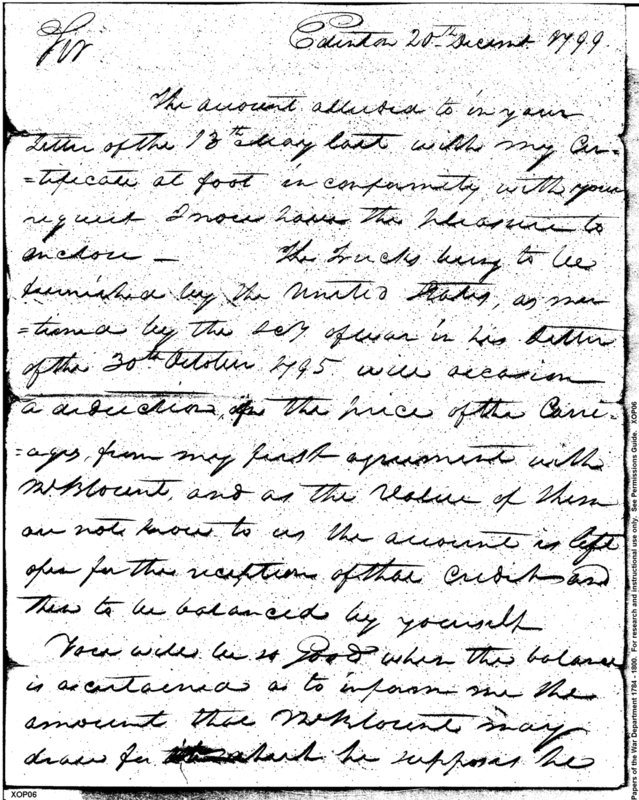 Sir
Edenton 20th Decemr. 1799.
The account alluded to in your
Letter of the 13th May last with my Cer-
=tificate at foot in conformity with your
request I now have the pleasure to
inclose — The Trucks being to be
furnished by the United States, as men
=tioned by the Secy of war in his Letter
of the 30th October 1795 will occasion
a deduction, in the price of the Carri-
=ages, from my first agreement with
Mr. Blount, and as the Value of them
are not know to us the account is left
open for the reception of that Credit and
then to be balanced by yourself
You will be so Good when the balance
is ascertained as to inform me the
amount that Mr. Blount may
draw for he supposes he
XOP06
Papers of the War Department 1784 - 1800. For research and instructional use only. See Permissions Guide. XOP06